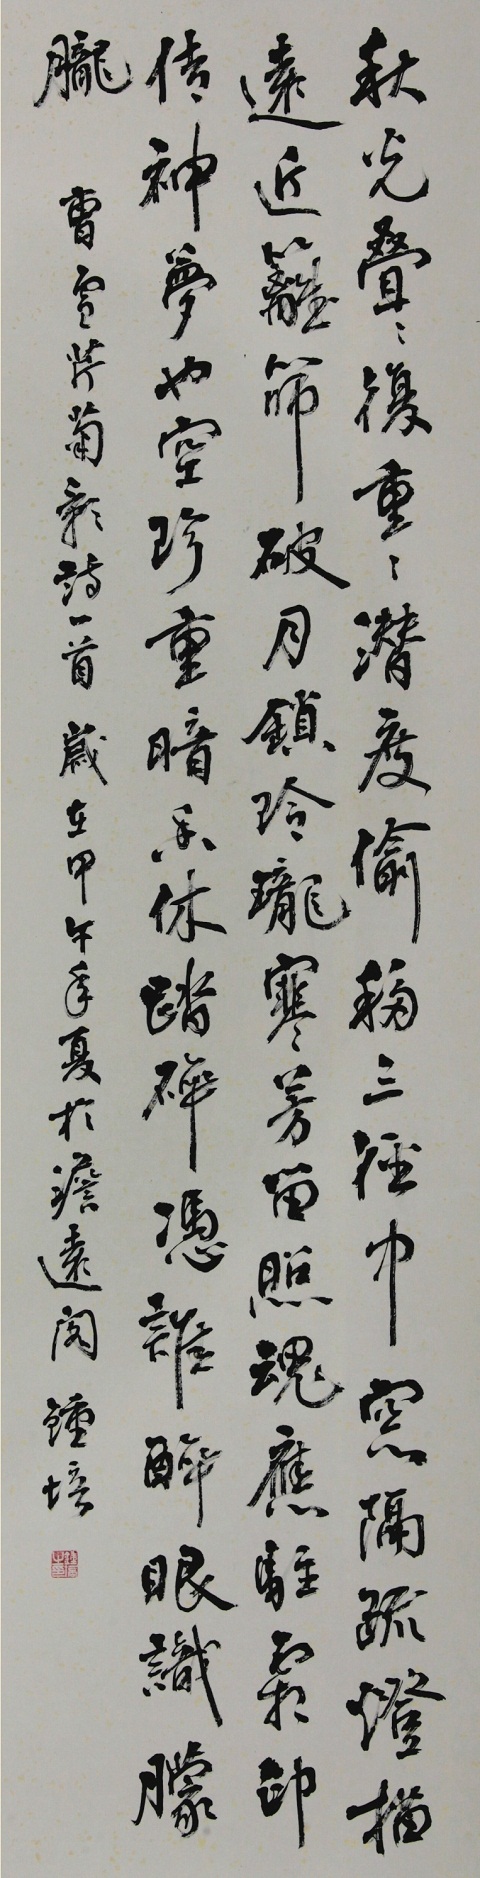 秋光疊〻復重〻潛度偷移三徑中窓隔疏燈描
遠近籬篩破月鎖玲瓏寒芳留照魂應駐霜印
傳神夢也空珍重暗香休踏碎憑誰醉眼識朦
朧
曹雪芹菊影詩一首 歲在甲午年夏於澹遠閣 鍾培